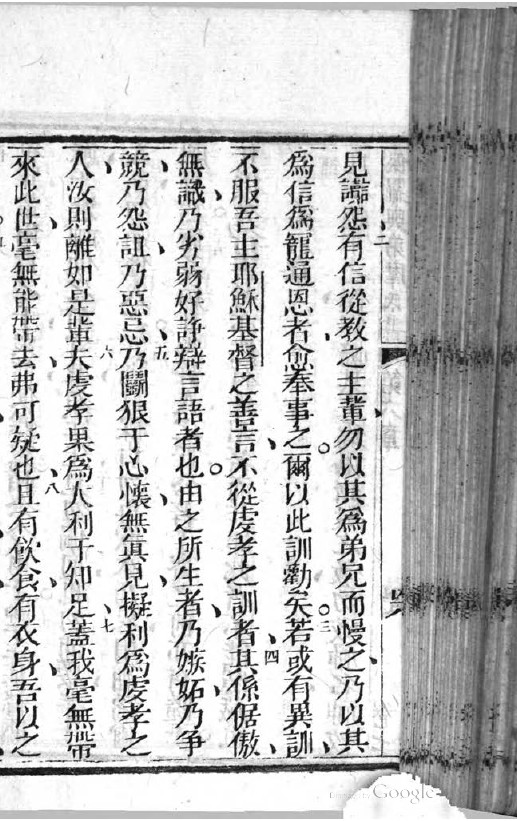 見謗怨有信從教之主輩勿以其為弟兄而慢之乃以其
為信為寵通恩者愈奉事之爾以此訓勸矣若或有異訓
不服吾主耶穌基督之善言不從虔孝之訓者其係倨傲
無識乃劣弱好諍辯言語者也由之所生者乃嫉妬乃争
競乃怨詛乃惡忌乃鬭狠于心懷無眞見擬利為虔孝之
人汝則離如是輩夫虔孝果為大利于知足蓋我毫無帶
來此世毫無能帶去弗可疑也且有飲食有衣身吾以之
二
三
四
五
六
七
八
Google